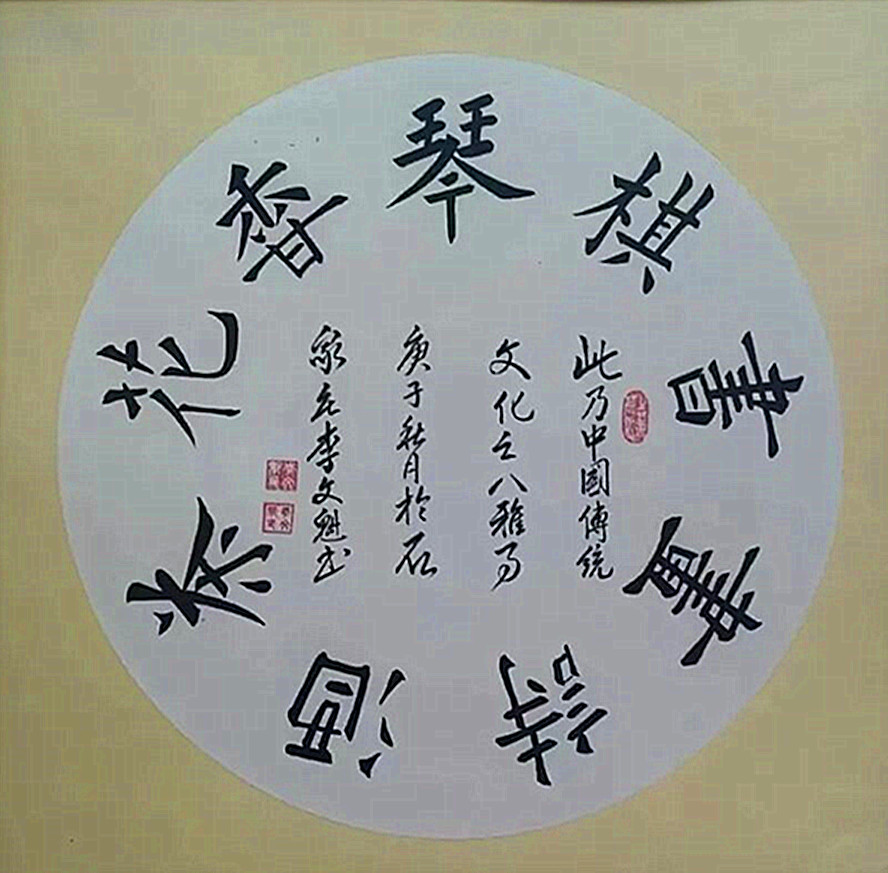 琴
棋
書
畫
詩
酒
茶
花
香
此乃中國傳統
文化之八雅子
庚子秋月於石
家莊李文魁書